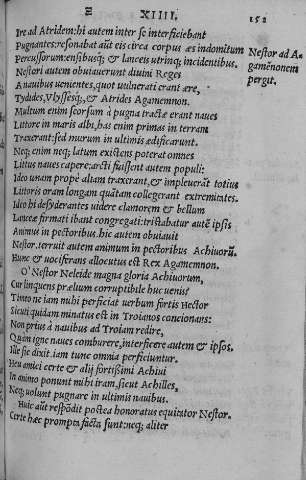 Ξ XIIII. 152
Ire ad Atridem: hi autem inter se interficiebant
Pugnantes: resonabat aũt eis circa corpus æs indomitum
Percussorum: ensibusq; & lanceis utrinq; incidentibus.
Nestor ad A-
gamēnonem
pergit.
Nestori autem obuiauerunt diuini Reges
A nauibus uenientes, quot uulnerati erant ære,
Tydides, Vlyssesq;, & Atrides Agamemnon.
Multum enim seorsum à pugna tractæ erant naues
Littore in maris albi. has enim primas in terram
Traxerant: sed murum in ultimis ædificarunt.
Neq; enim neq; latum existens poterat omnes
Littus naues capere: arcti fuissent autem populi:
Ideo unam propè altam traxerant, & impleuerāt totius
Littoris oram longam quātam collegerant extremitates.
Ideo hi desyderantes uidere clamorem & bellum
Lanceæ firmati ibant congregati: tristabatur autē ipsis
Animus in pectoribus. hic autem obuiauit
Nestor. terruit autem animum in pectoribus Achiuorũ.
Hunc & uociferans allocutus est Rex Agamemnon.
O' Nestor Neleide magna gloria Achiuorum,
Cur linquens prælium corruptibile huc uenis?
Timeo ne iam mihi perficiat uerbum fortis Hector
Sicuti quidam minatus est in Troianos concionans:
Non prius à nauibus ad Troiam redire,
Quàm igne naues comburere, interficere autem & ipsos.
Ille sic dixit. iam tunc omnia perficiuntur.
Heu amici certe & alij fortißimi Achiui
In animo ponunt mihi iram, sicut Achilles,
Neq; uolunt pugnare in ultimis nauibus.
Huic aũt respōdit postea honoratus equitator Nestor.
Certe hæc prompta facta sunt: neq; aliter